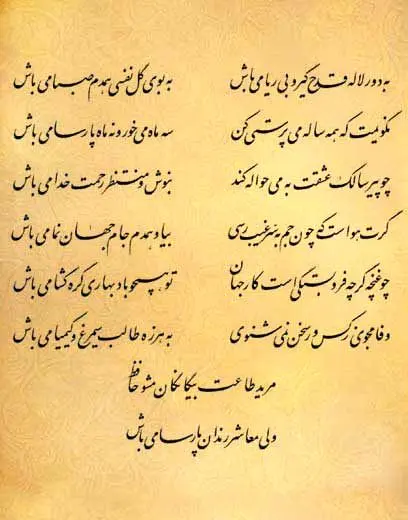 به دور لاله قدح گیر و بی ریا می باش به بوی گل نفسی همدم صبا می باش
نگویمت که همه ساله می پرستی کن سه ماه می خور و نه ماه پارسا می باش
چو پیر سالک عشقت به می حواله کند بنوش و منتظر رحمت خدا می باش
گرت هواست که چون جم به سر غیب رسی بیا و همدم جام جهان نما می باش
چو غنچه گرچه فروبستگی است کار جهان تو همچو باد بهاری گره گشا می باش
وفا مجوی ز کس ور سخن نمی شنوی به هرزه طالب سیمرغ و کیمیا می باش
مرید طاعت بیگانگان مشو حافظ
ولی معاشر رندان پارسا می باش